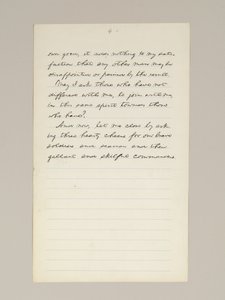 4
own good, it adds nothing to my satis-
faction that any other man may be
disappointed or pained by the result.
May I ask those who have not
differed with me, to join with me,
in this same spirit towards those
who have?
And now, let me close by ask-
ing three hearty cheers for our brave
soldiers and seamen and their
gallant and skilful commanders.